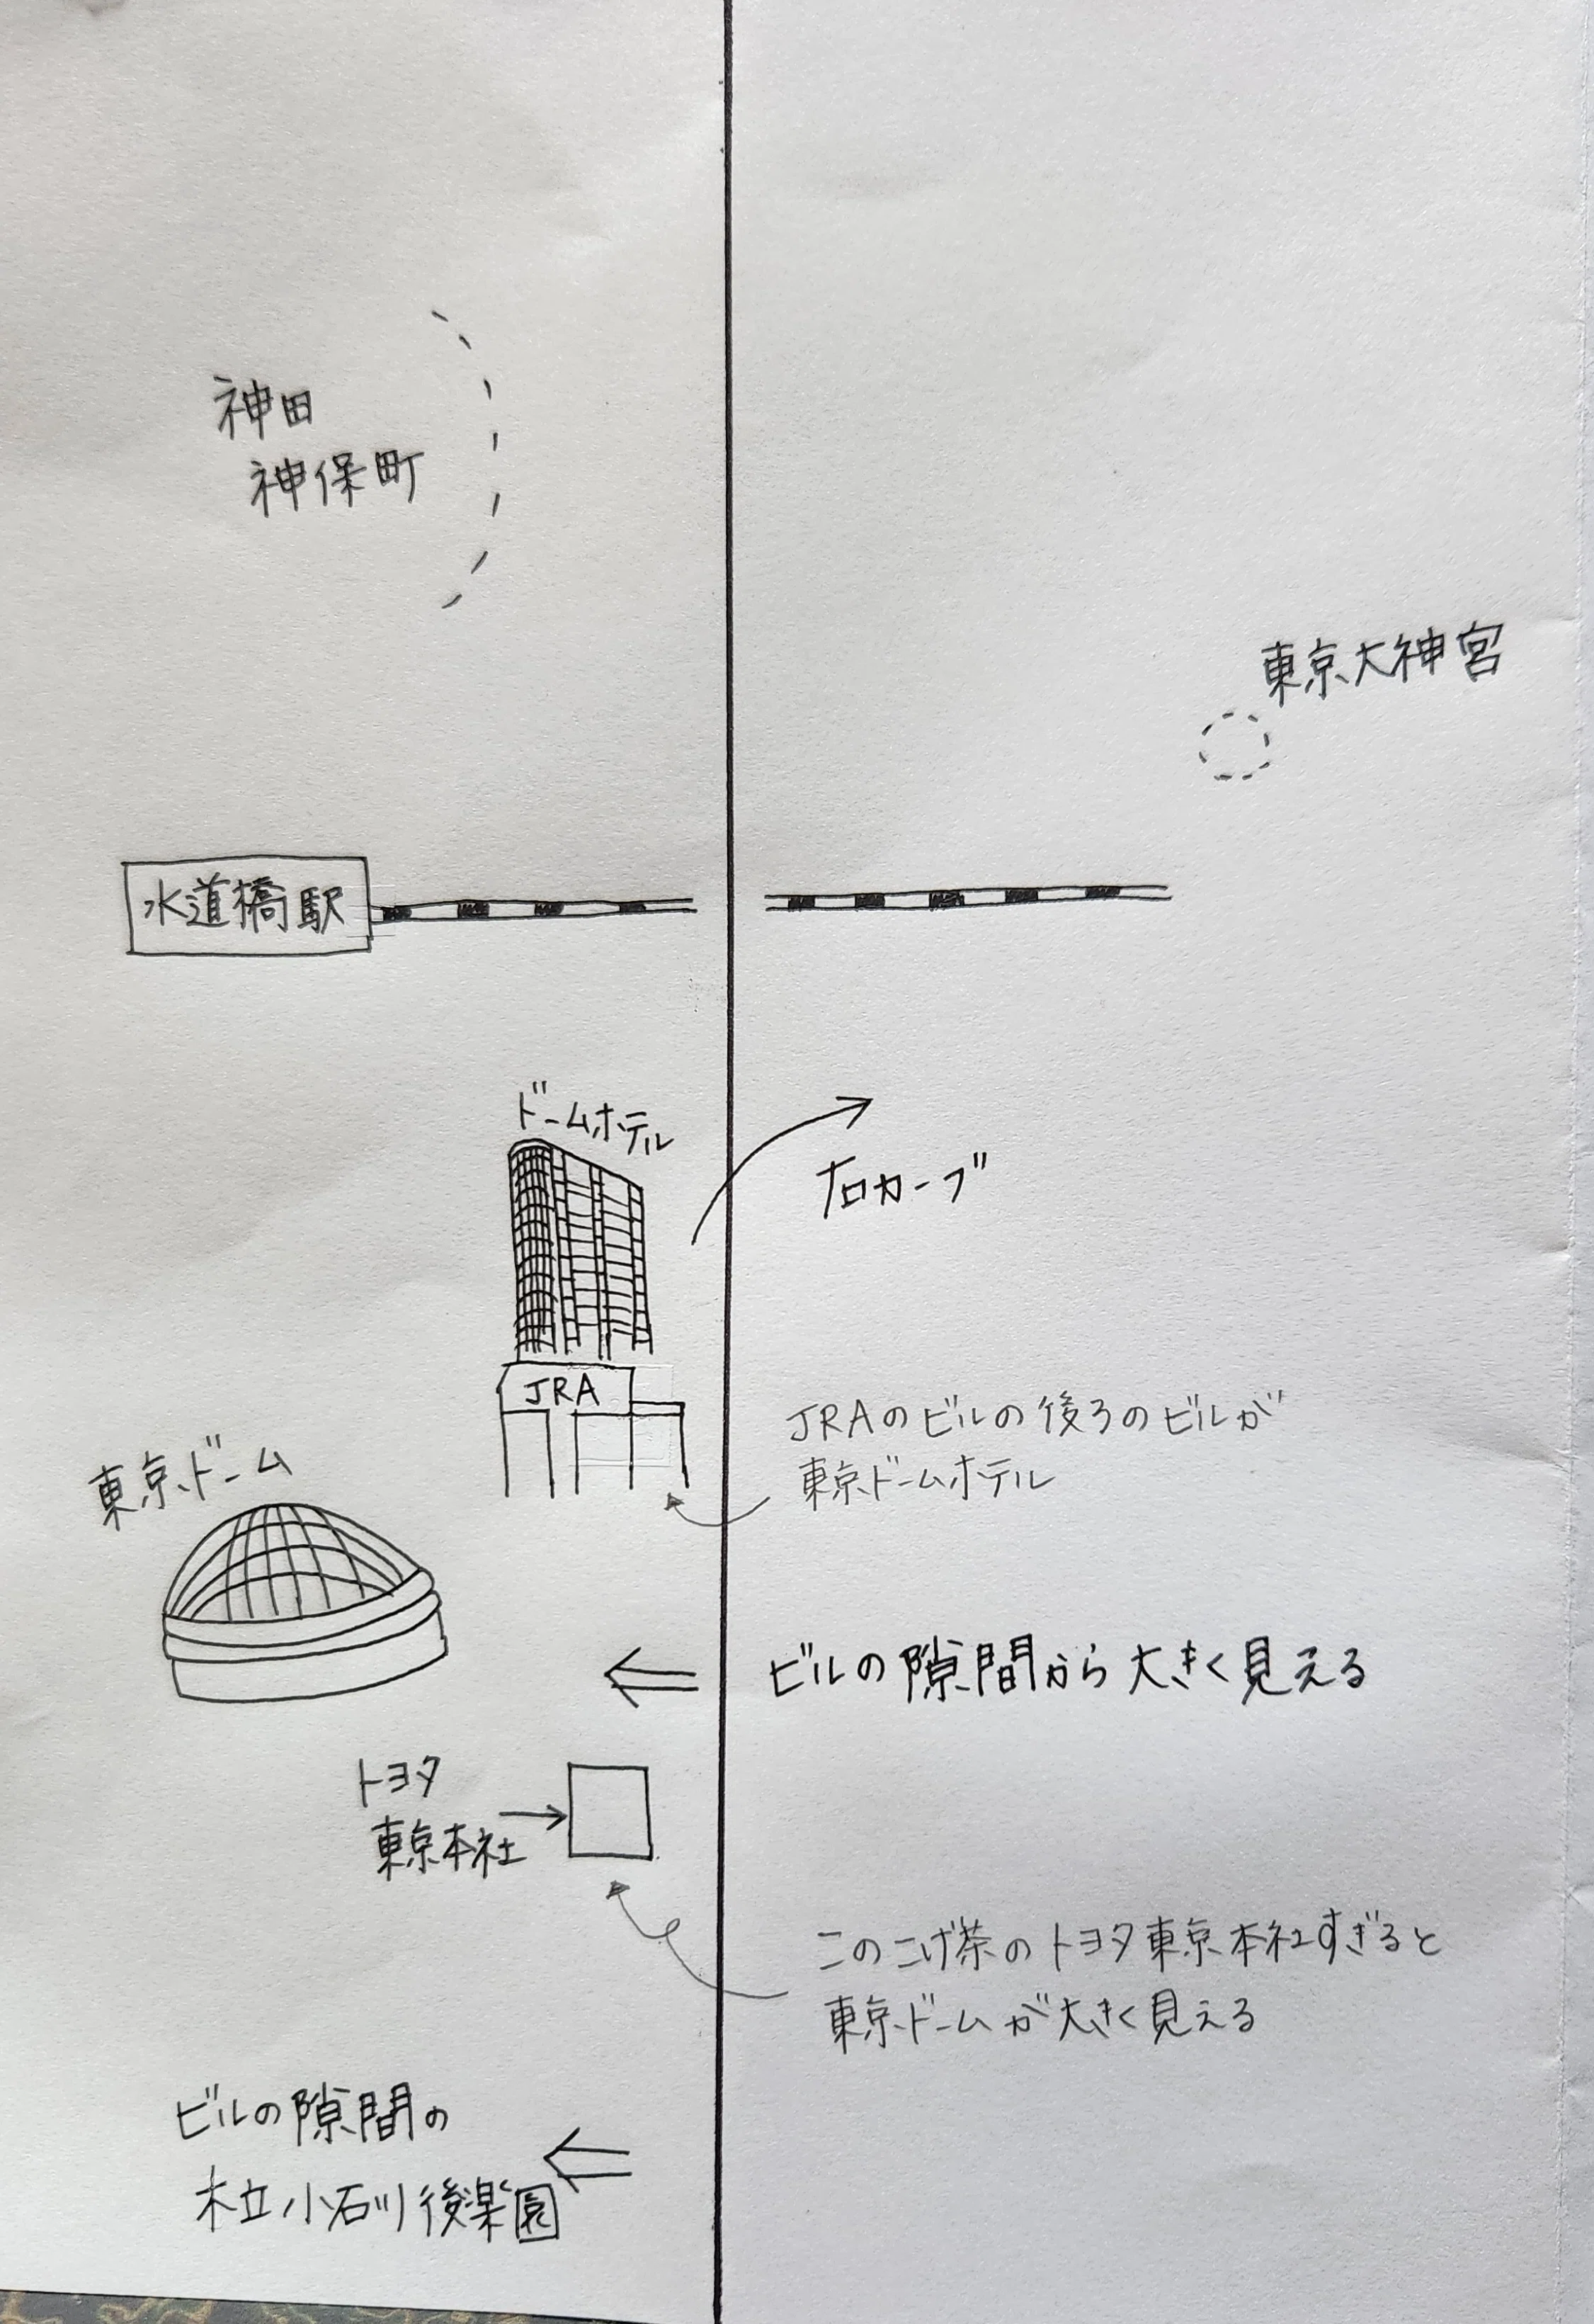 神田
神保町
東京大神宮
水道橋駅
ドームホテル
右カーブ
JRA
JRAのビルの後ろのビルが
東京ドームホテル
東京ドーム
ビルの隙間から大きく見える
トヨタ
東京本社
このこげ茶のトヨタ東京本社すぎると
東京ドームが大きく見える
ビルの隙間の
木立小石川後楽園